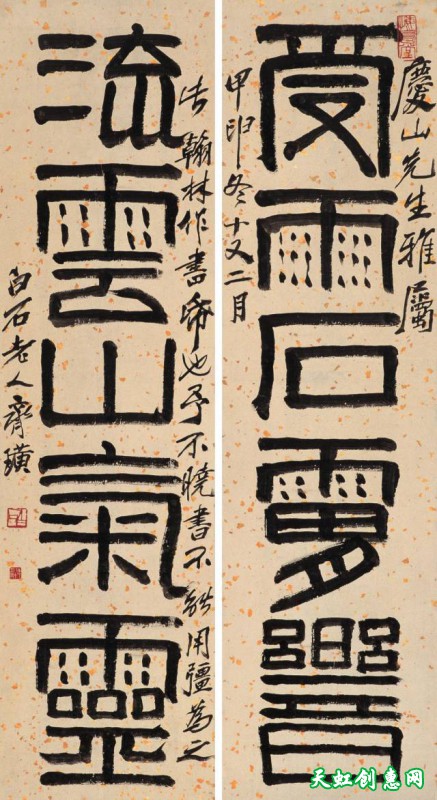 慶山先生雅屬
受雨石
甲申冬十又二月
流雲山氣靈
翰林作書帋也予不曉書不能用彊為之
白石老人齊璜
天虹创惠网